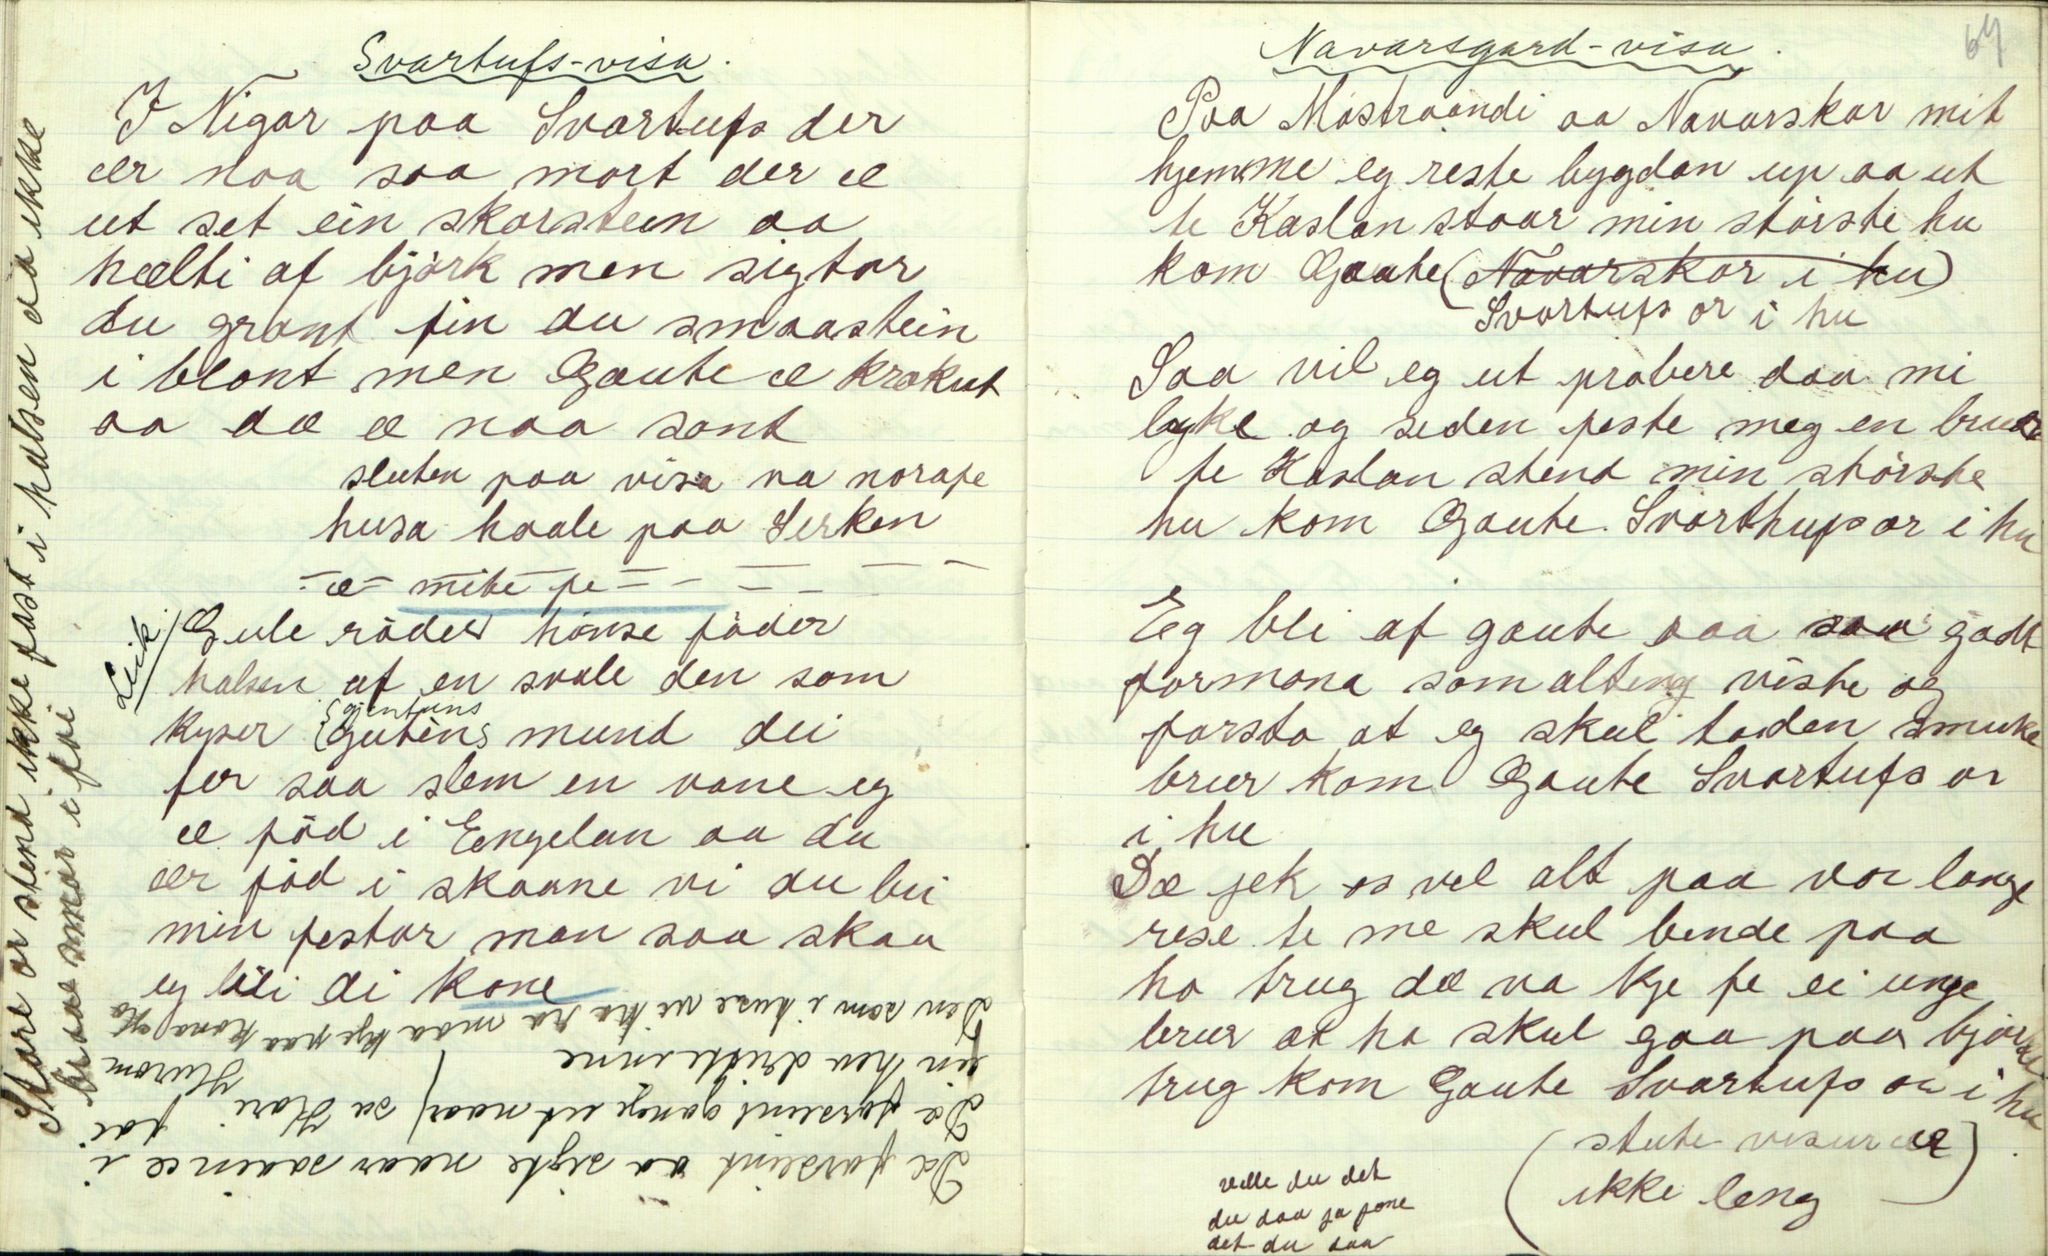 Svartufs-visa.
I Nigar paa Svartufs der
ær noa saa mort der æ
ut set ein skorstein aa
hælti af björk men sigtar
du grant fin du smaastein
i blant men Gaute æ krokut
aa dæ æ noa sant
sluten paa visa va norafe
husa haale paa Lerken
- æ - mite fe - - -
Leik
Gule röder hönse föder
halsen af en svale den som
kyser Gutens mund dei
jentuns
fer saa slem en vane eg
æ föd i Engelan aa du
ær föd i skaane vi du bli
min festar man saa skaa
eg bli di kone
Den som i huse vi ha ra maa kje paa kona
ein hev drikke inne
Dæ forseint gange ut naar sa Kari Hurom
Dæ forseint aa sigte naar saaine æ i foi
Stare or stend ikke fast i halsen da ikke
bisse smor i foi
64
Navarsgard-visa.
Paa Möstraandi aa Navarskar mit
hjemme eg reste bygdan up aa ut
te Kaslan staar min störste hu
kom Gaute (Navarskar i hu)
Svartufs or i hu
Saa vil eg ut probere daa mi
lyke og seden feste meg en brur
te Kaslan stend min störste
hu kom Gaute Svarthufs or i hu
Eg bli af gaute aa saa godt
formona som alteng viste og
forsto at eg skul ta den smuke
brur kom Gaute Svartufs or
i hu
Dæ jek os vel alt paa vor lange
rese te me skul bende paa
ho trug dæ va kje fe ei unge
brur at ho skul gaa paa björke
trug kom Gaute Svartufs or i hu
(stute visur ær
ikke leng)
ville du det
du daa ja fone
det du daa